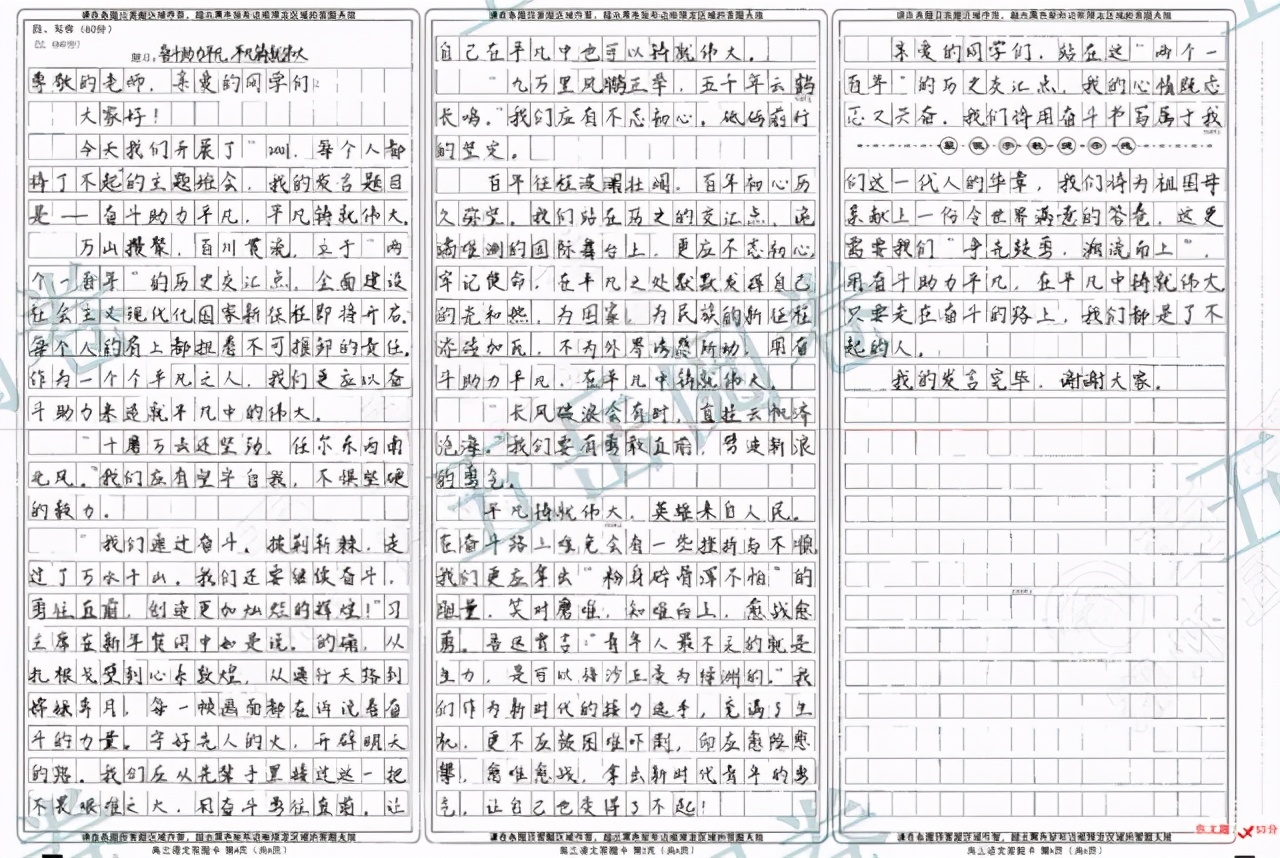 请在各题目的答题区域作答，超出黑色矩形边框限定区域的答案无效
四、写作（60分）
题目：奋斗助力平凡，平凡铸就伟大
尊敬的老师，亲爱的同学们：
大家好！
今天我们开展了"2021，每个人都
将了不起的主题班会，我的发言题目
是——奋斗助力平凡，平凡铸就伟大。
万山攒聚，百川贯流，立于"两
个一百年"的历史交汇点，全面建设
社会主义现代化国家新征程即将开启。
每个人的肩上都担着不可推卸的责任。
作为一个个平凡之人，我们更应以奋
斗助力来造就平凡中的伟大。
"千磨万击还坚劲，任尔东西南
北风。"我们应有坚守自我，不惧坚硬
的毅力。
"我们通过奋斗。披荆斩棘，走
过了万水千山。我们还要继续奋斗，
勇往直前，创造更加灿烂的辉煌！"习
主席在新年贺词中如是说。的确，从
扎根戈壁到心系敦煌，从逐行天路到
嫦娥奔月，每一帧画面都在诉说着奋
斗的力量。守好先人的火，开辟明天
的路。我们应从先辈手里接过这一把
不畏艰难之火，用奋斗勇往直前。让
请在各题目的答题区域作答，超出黑色矩形边框限定区域的答案无效
请在各题目的答题区域作答，超出黑色矩形边框限定区域的答案无效
自己在平凡中也可以铸就伟大。
"九万里风鹏正举，五千年云鹤
长鸣。"我们应有不忘初心，砥砺前行
的坚定。
百年征程波澜壮阔，百年初心历
久弥坚。我们站在历史的交汇点，诡
谲莫测的国际舞台上，更应不忘初心，
牢记使命，在平凡之处默默发挥自己
的光和热，为国家，为民族的新征程
添砖加瓦，不为外界诱惑所动，用奋
斗助力平凡，在平凡中铸就伟大。
"长风破浪会有时，直挂云帆济
沧海。"我们要有勇敢直前，劈波斩浪
的勇气。
平凡铸就伟大，英雄来自人民。
在奋斗路上难免会有一些挫折与不顺，
我们更应拿出"粉身碎骨浑不怕"的
胆量，笑对磨难，知难向上，愈战愈
勇。鲁迅有言："青年人最不乏的就是
生力，是可以禧沙丘变为绿洲的。"我
们作为新时代的接力选手，充满了生
机，更不应被困难吓倒，即应愈险愈
攀，愈难愈战，拿出新时代青年的勇
气，让自己也变得了不起！
请在各题目的答题区域作答，超出黑色矩形边框限定区域的答案无效
请在各题目的答题区域作答，超出黑色矩形边框限定区域的答案无效
亲爱的同学们，站在这"两个一
百年"的历史交汇点，我的心情既忐
忑又兴奋。我们将用奋斗书写属于我
们这一代人的华章，我们将为祖国母
亲献上一份令世界满意的答卷。这更
需要我们"争先鼓勇，溯流而上"，
用奋斗助力平凡，在平凡中铸就伟大
只要走在奋斗的路上，我们都是了不
起的人。
我的发言完毕，谢谢大家。
请在各题目的答题区域作答，超出黑色矩形边框限定区域的答案无效
五岳阅卷